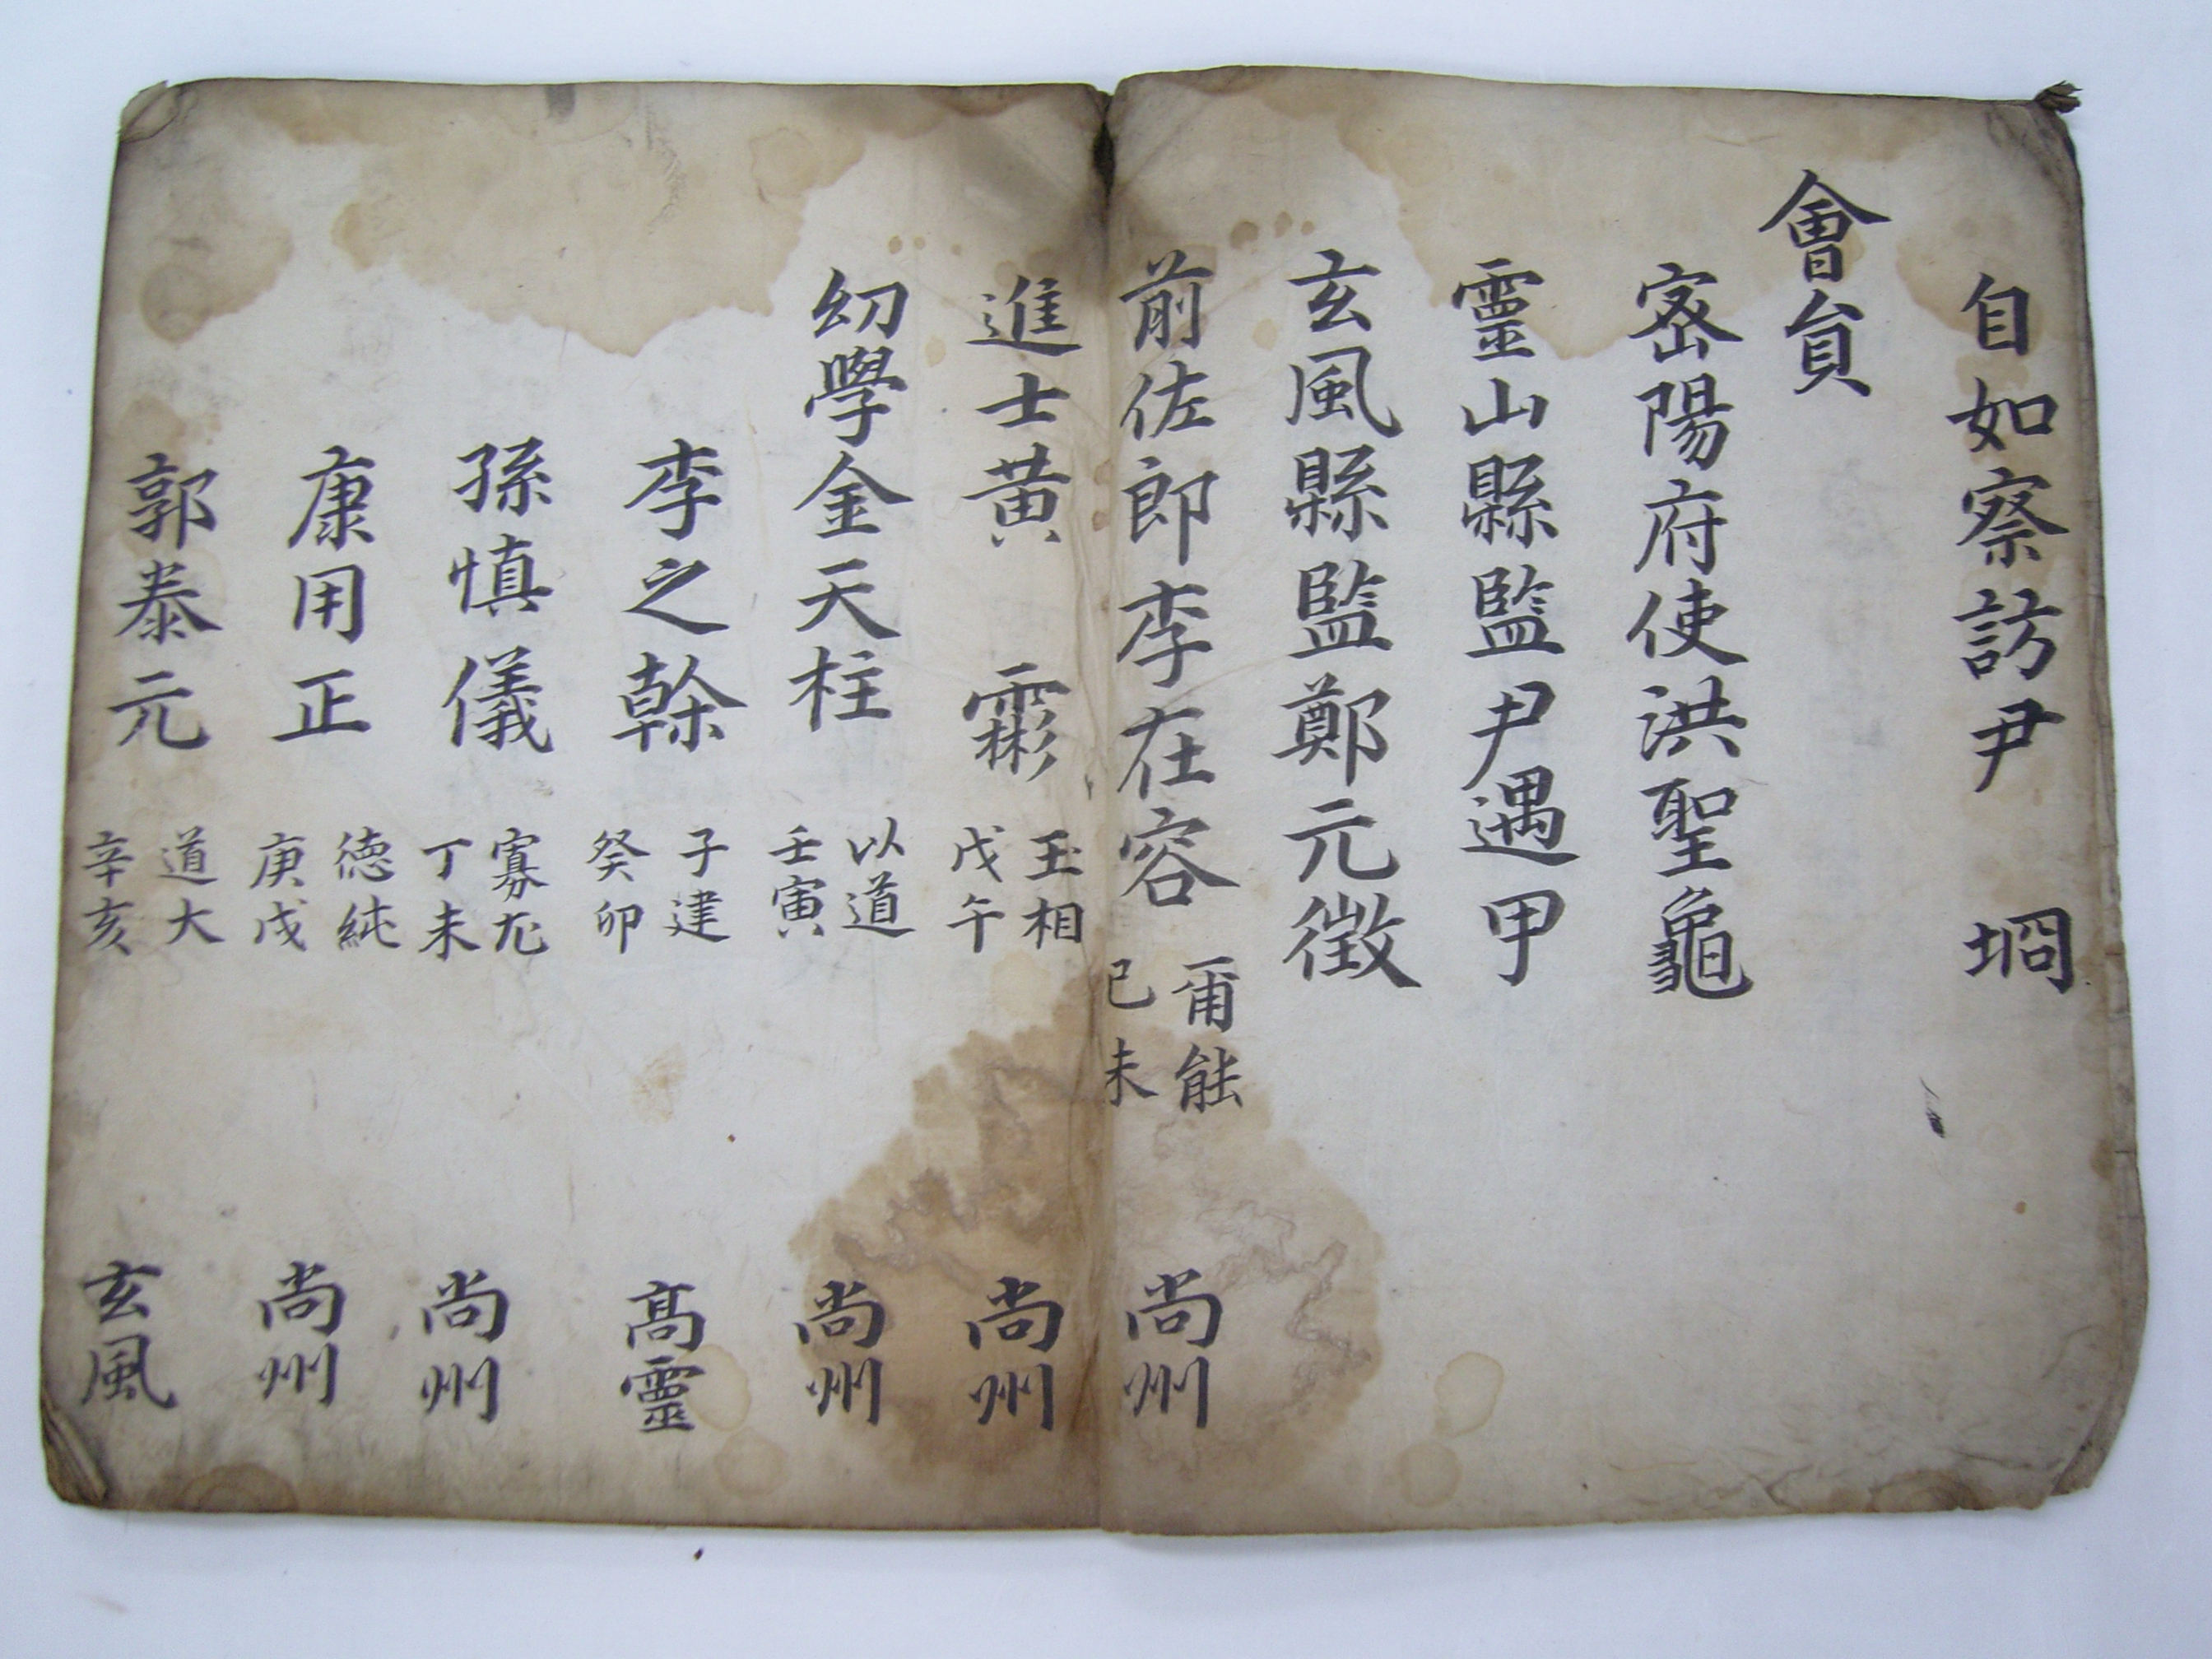 自如察訪尹 堈
會員
密陽府使洪聖龜
靈山縣監尹遇甲
玄風縣監鄭元徵
前佐郎李在容 爾能 己未 尚州
進士黃 霦 玉相 戊午 尚州
幼學金天柱 以道 壬寅 尚州
李之榦 子建 癸卯 高靈
孫慎儀 寡尤 丁未 尚州
康用正 德純 庚戌 尚州
郭泰元 道大 辛亥 玄風